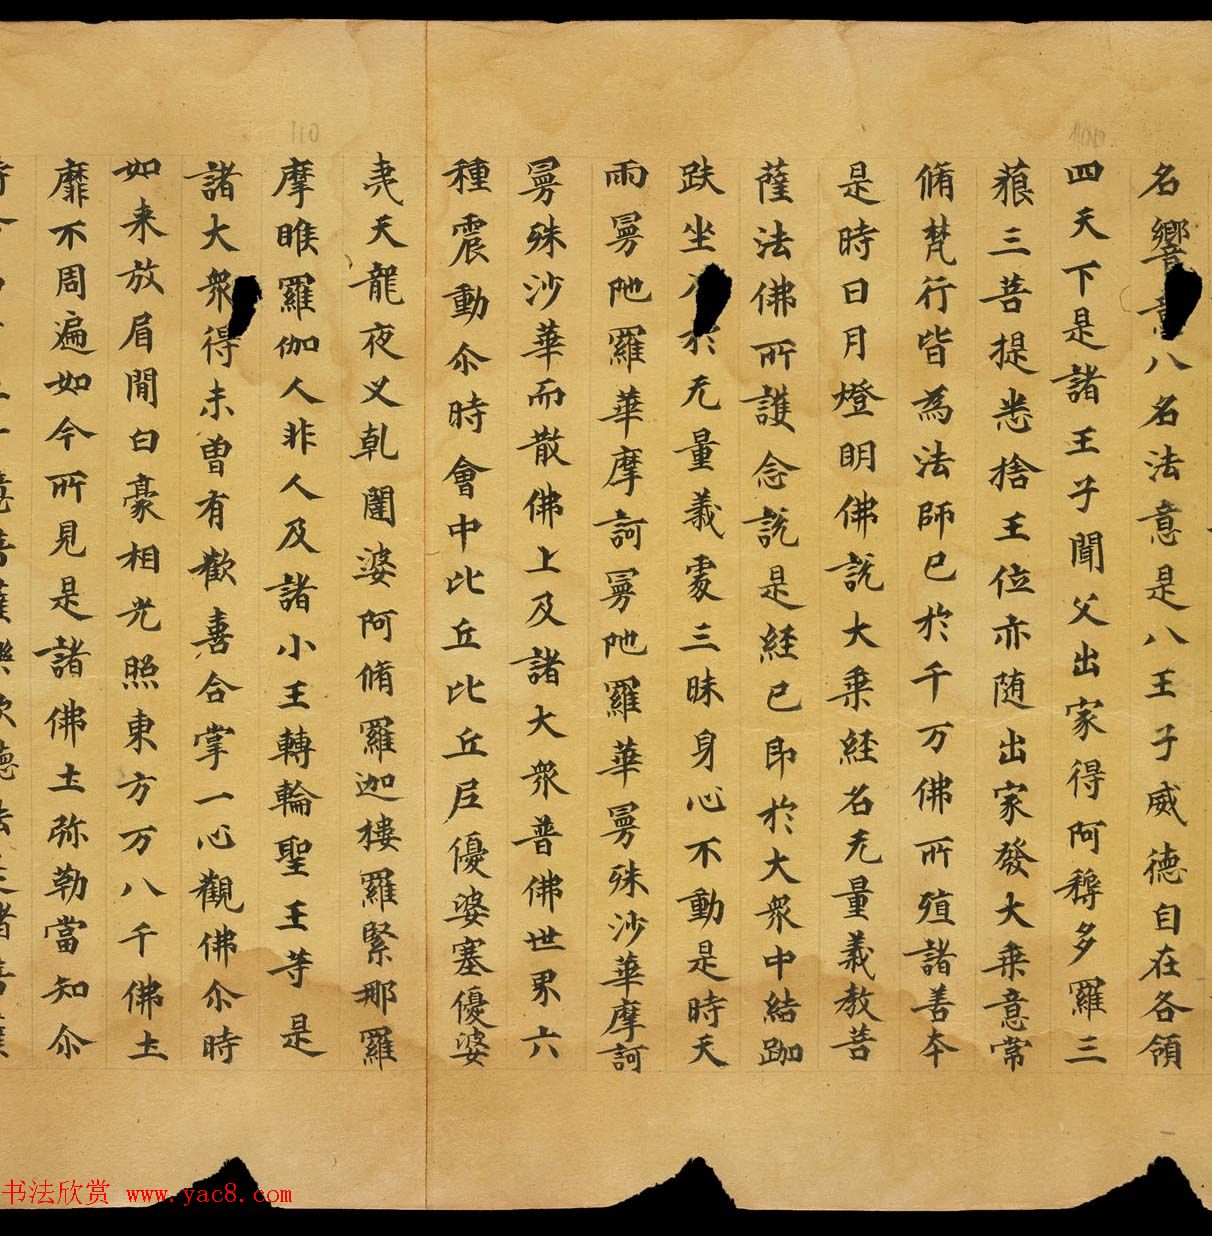 名響意八名法意是八王子威德自在各領
四天下是諸王子聞父出家得阿耨多羅三
藐三菩提悉捨王位亦随出家發大乗意常
脩梵行皆為法師已於千万佛所殖諸善本
是時日月燈明佛説大乗経名无量義教菩
薩法佛所護念説是経已即於大衆中結跏
趺坐入於无量義處三昧身心不動是時天
雨曼陁羅華摩訶曼陁羅華曼殊沙華摩訶
曼殊沙華而散佛上及諸大衆普佛世界六
種震動尒時會中比丘比丘尼優婆塞優婆
夷天龍夜叉乹闥婆阿脩羅迦樓羅緊那羅
摩睺羅伽人非人及諸小王轉輪聖王等是
諸大衆得未曽有歡喜合掌一心觀佛尒時
如来放眉間白豪相光照東方万八千佛土
靡不周遍如今所見是諸佛土弥勒當知尒
书法欣赏 www.yac8.com